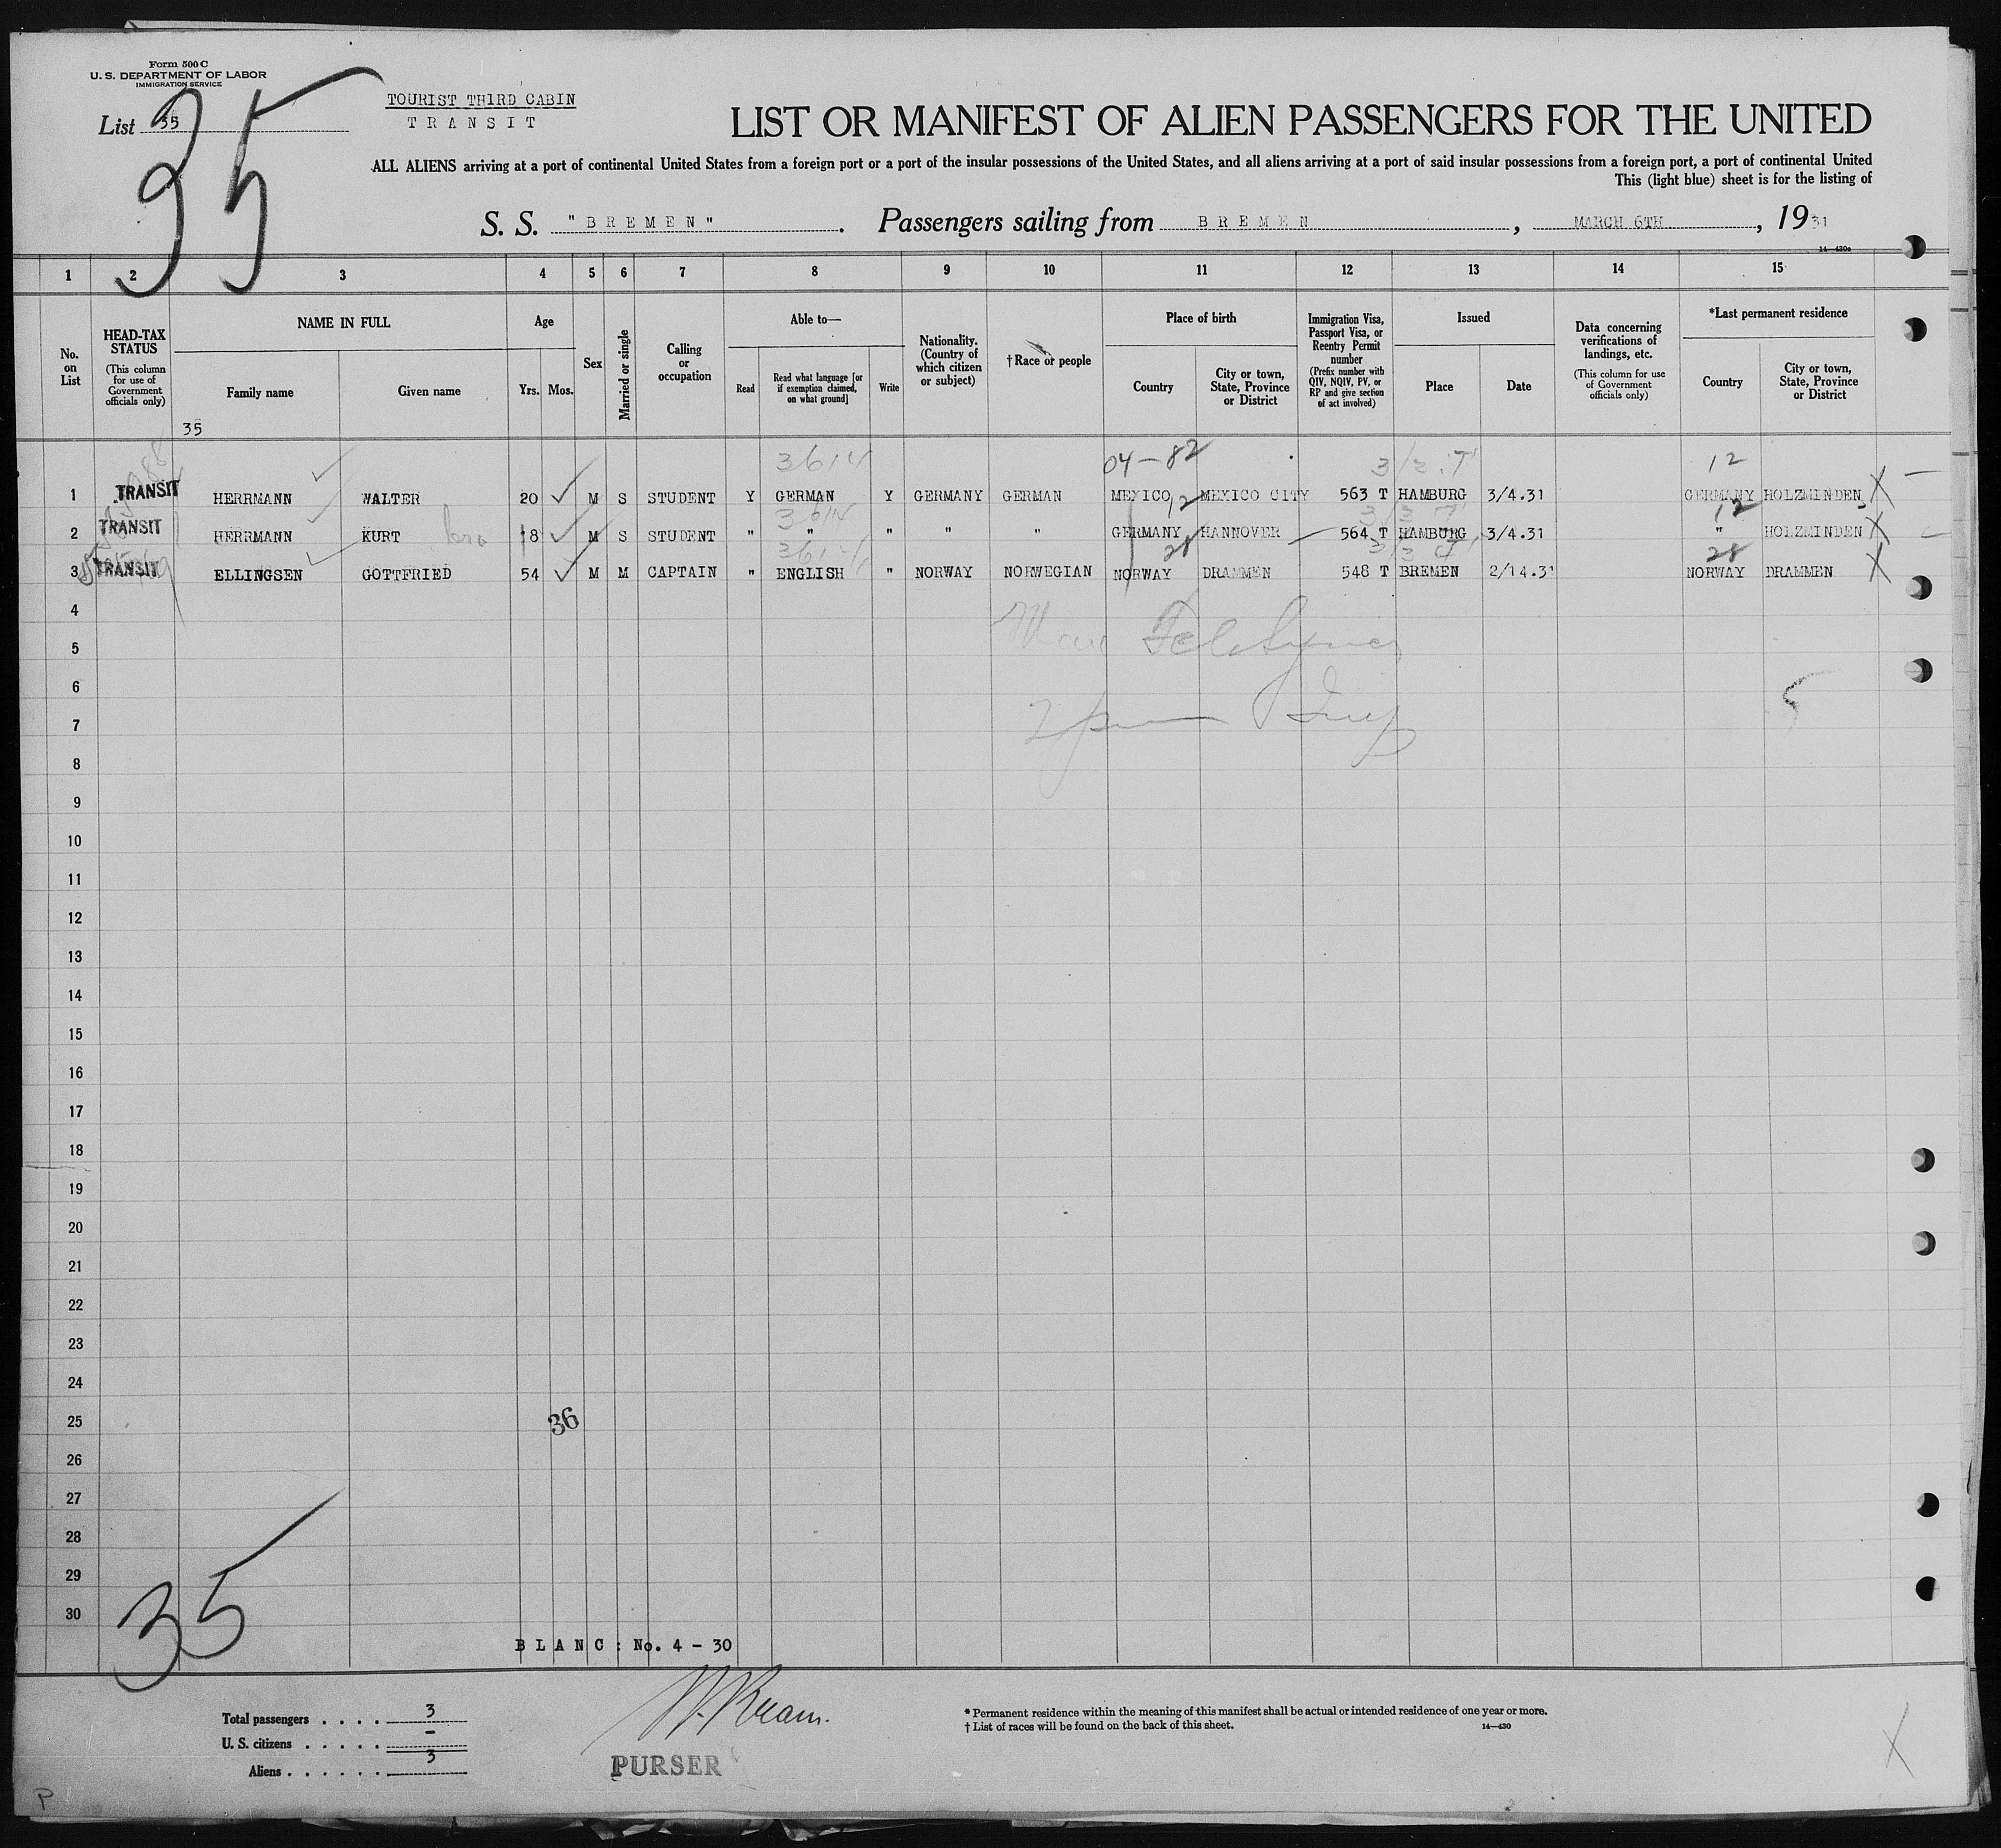 Form 500 C
U. S. DEPARTMENT OF LABOR
IMMIGRATION SERVICE
List 35
35
TOURIST THIRD CABIN
TRANSIT
LIST OR MANIFEST OF ALIEN PASSENGERS FOR THE UNITED
ALL ALIENS arriving at a port of continental United States from a foreign port or a port of the insular possessions of the United States, and all aliens arriving at a port of said insular possessions from a foreign port, a port of continental United
This (light blue) sheet is for the listing of
S. S. "BREMEN". Passengers sailing from BREMEN, MARCH 6TH, 1931
14—430c
1 2 3 4 5 6 7 8 9 10 11 12 13 14 15
No. on List
HEAD-TAX STATUS (This column for use of Government officials only)
NAME IN FULL
Family name
Given name
35
Age
Yrs. Mos.
Sex
Married or single
Calling or occupation
Able to—
Read
Read what language [or if exemption claimed, on what ground]
Write
Nationality. (Country of which citizen or subject)
† Race or people
Place of birth
Country
City or town, State, Province or District
Immigration Visa, Passport Visa, or Reentry Permit number (Prefix number with QIV, NQIV, PV, or RP and give section of act involved)
Issued
Place
Date
Data concerning verifications of landings, etc. (This column for use of Government officials only)
*Last permanent residence
Country
City or town, State, Province or District
3614 04-82 3/3 T 12
1 TRANSIT HERRMANN WALTER 20 M S STUDENT Y GERMAN Y GERMANY GERMAN MEXICO MEXICO CITY 563 T HAMBURG 3/4.31 GERMANY HOLZMINDEN X
3614 12 3/3 T 12
2 TRANSIT HERRMANN KURT bro 18 M S STUDENT " " " " " GERMANY HANNOVER 564 T HAMBURG 3/4.31 " HOLZMINDEN X
3614 28 3/3 T 28
3 TRANSIT ELLINGSEN GOTTFRIED 54 M M CAPTAIN " ENGLISH " NORWAY NORWEGIAN NORWAY DRAMMEN 548 T BREMEN 2/14.31 NORWAY DRAMMEN X
4
5
6
7
8
9
10
11
12
13
14
15
16
17
18
19
20
21
22
23
24
25
36
26
27
28
29
30
35
BLANC: No. 4 - 30
Total passengers . . . . 3
U. S. citizens . . . . . -
Aliens . . . . . . 3
PURSER
* Permanent residence within the meaning of this manifest shall be actual or intended residence of one year or more.
† List of races will be found on the back of this sheet.
14—430
X
P